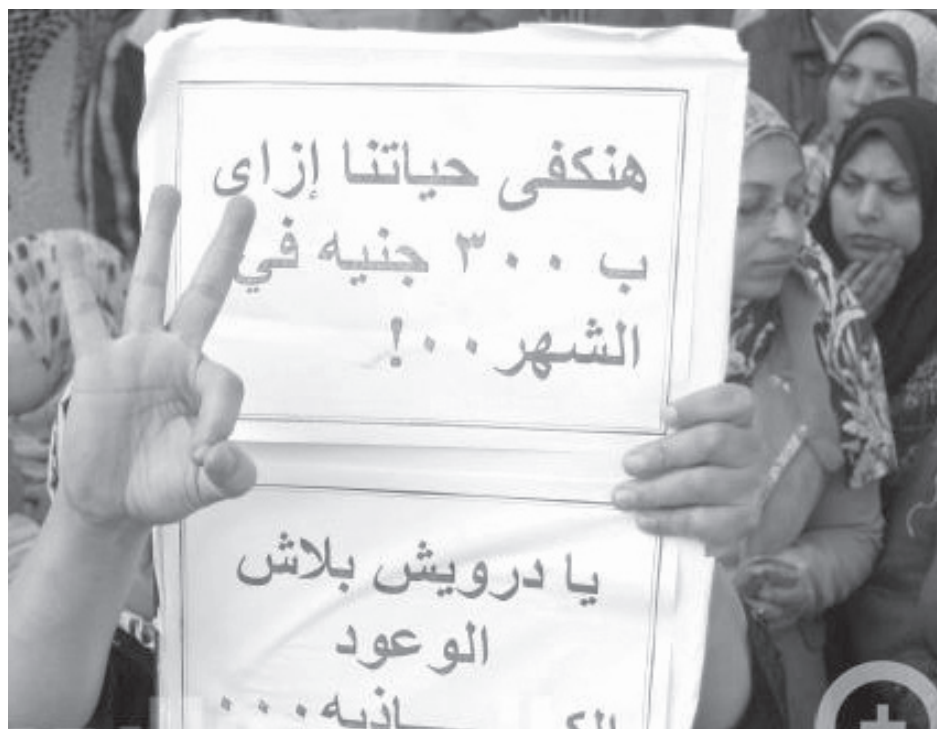 هنكفى حياتنا إزاى
ب ٣٠٠ جنيه في
الشهر ٠٠!
يا درويش بلاش
الوعود